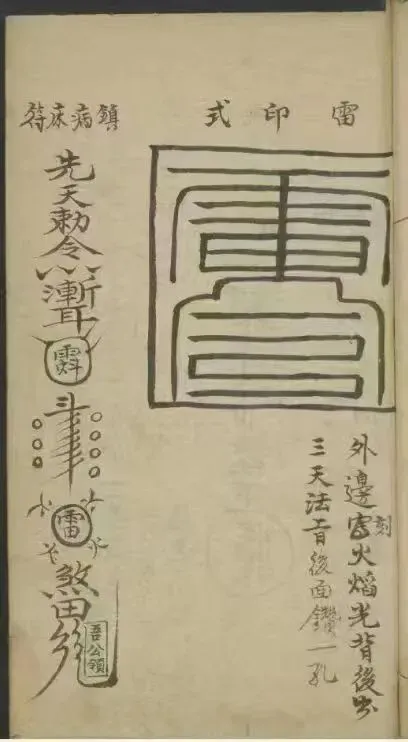 雷印式
外邊寫刻火焰光背後出
三天法言後面鑽一孔
鎮病床符
先天勅令
雷
煞
吾公領